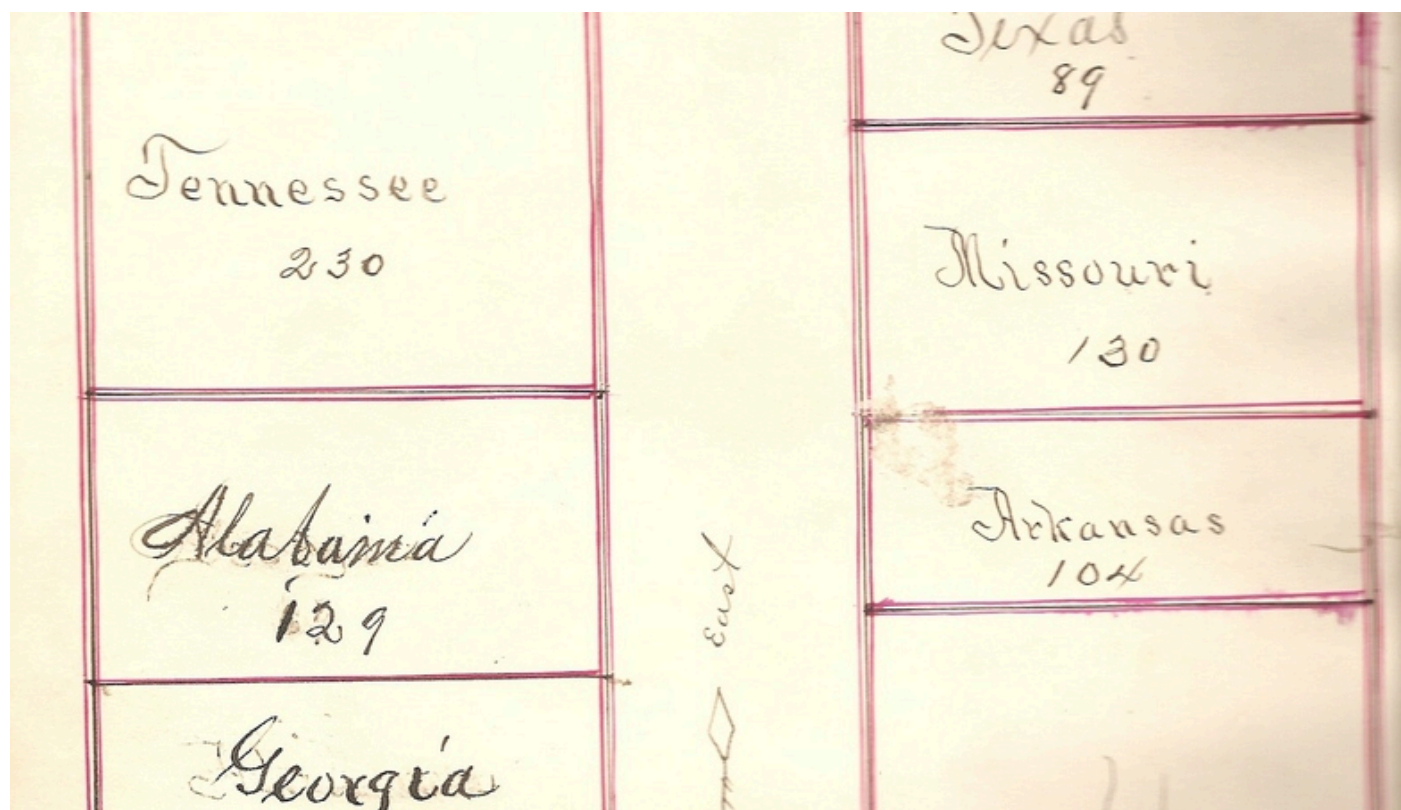 Tennessee
230
Alabama
129
Georgia
East
Texas
89
Missouri
130
Arkansas
104